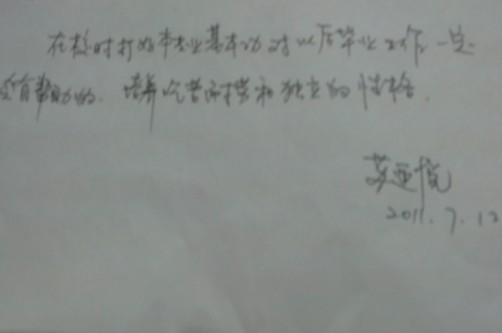 在校时打好本专业基本功对以后毕业工作一定
会有帮助的. 培养吃苦耐劳和独立的性格.
2011.7.12